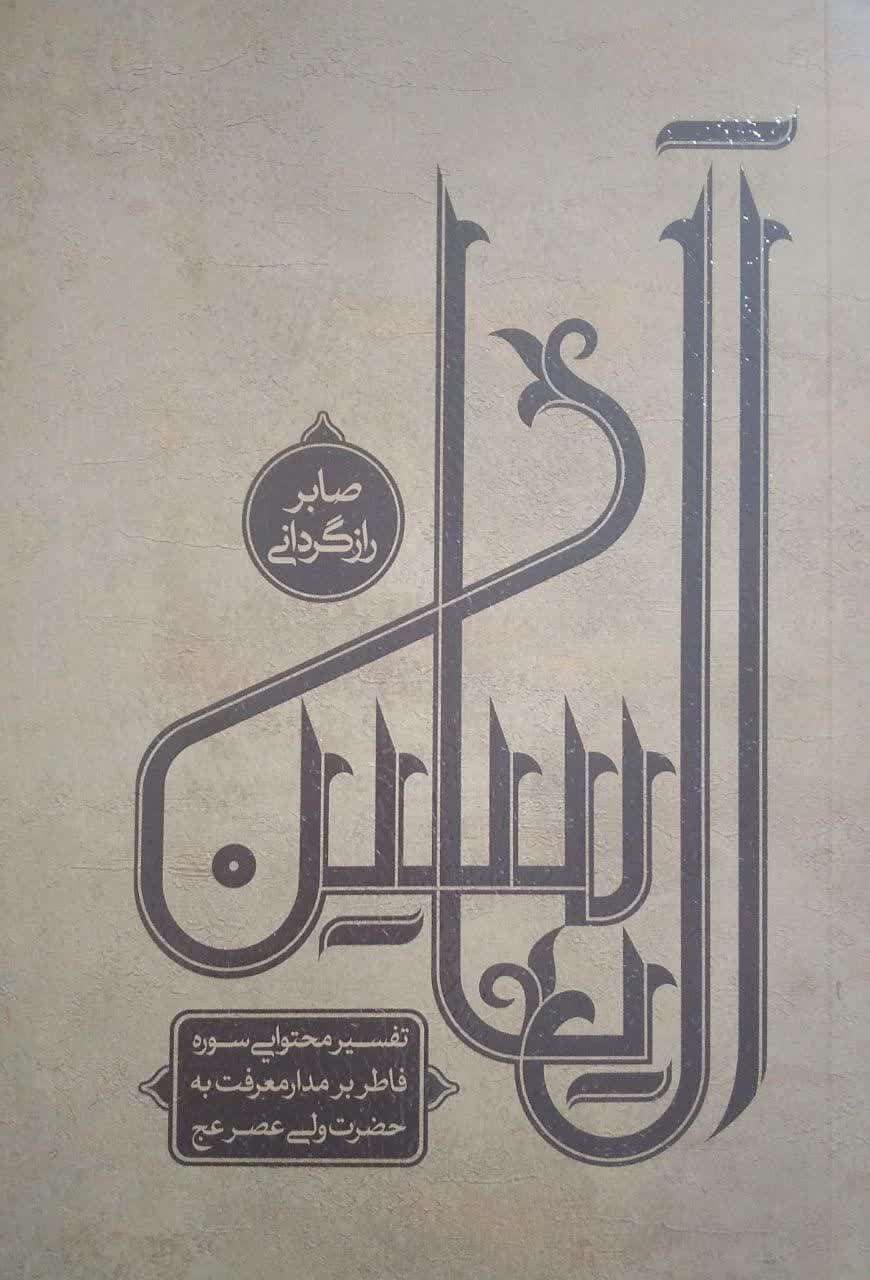 آل یاسین
صابر
رازگردانی
تفسیر محتوایی سوره
فاطر بر مدار معرفت به
حضرت ولی عصر عج